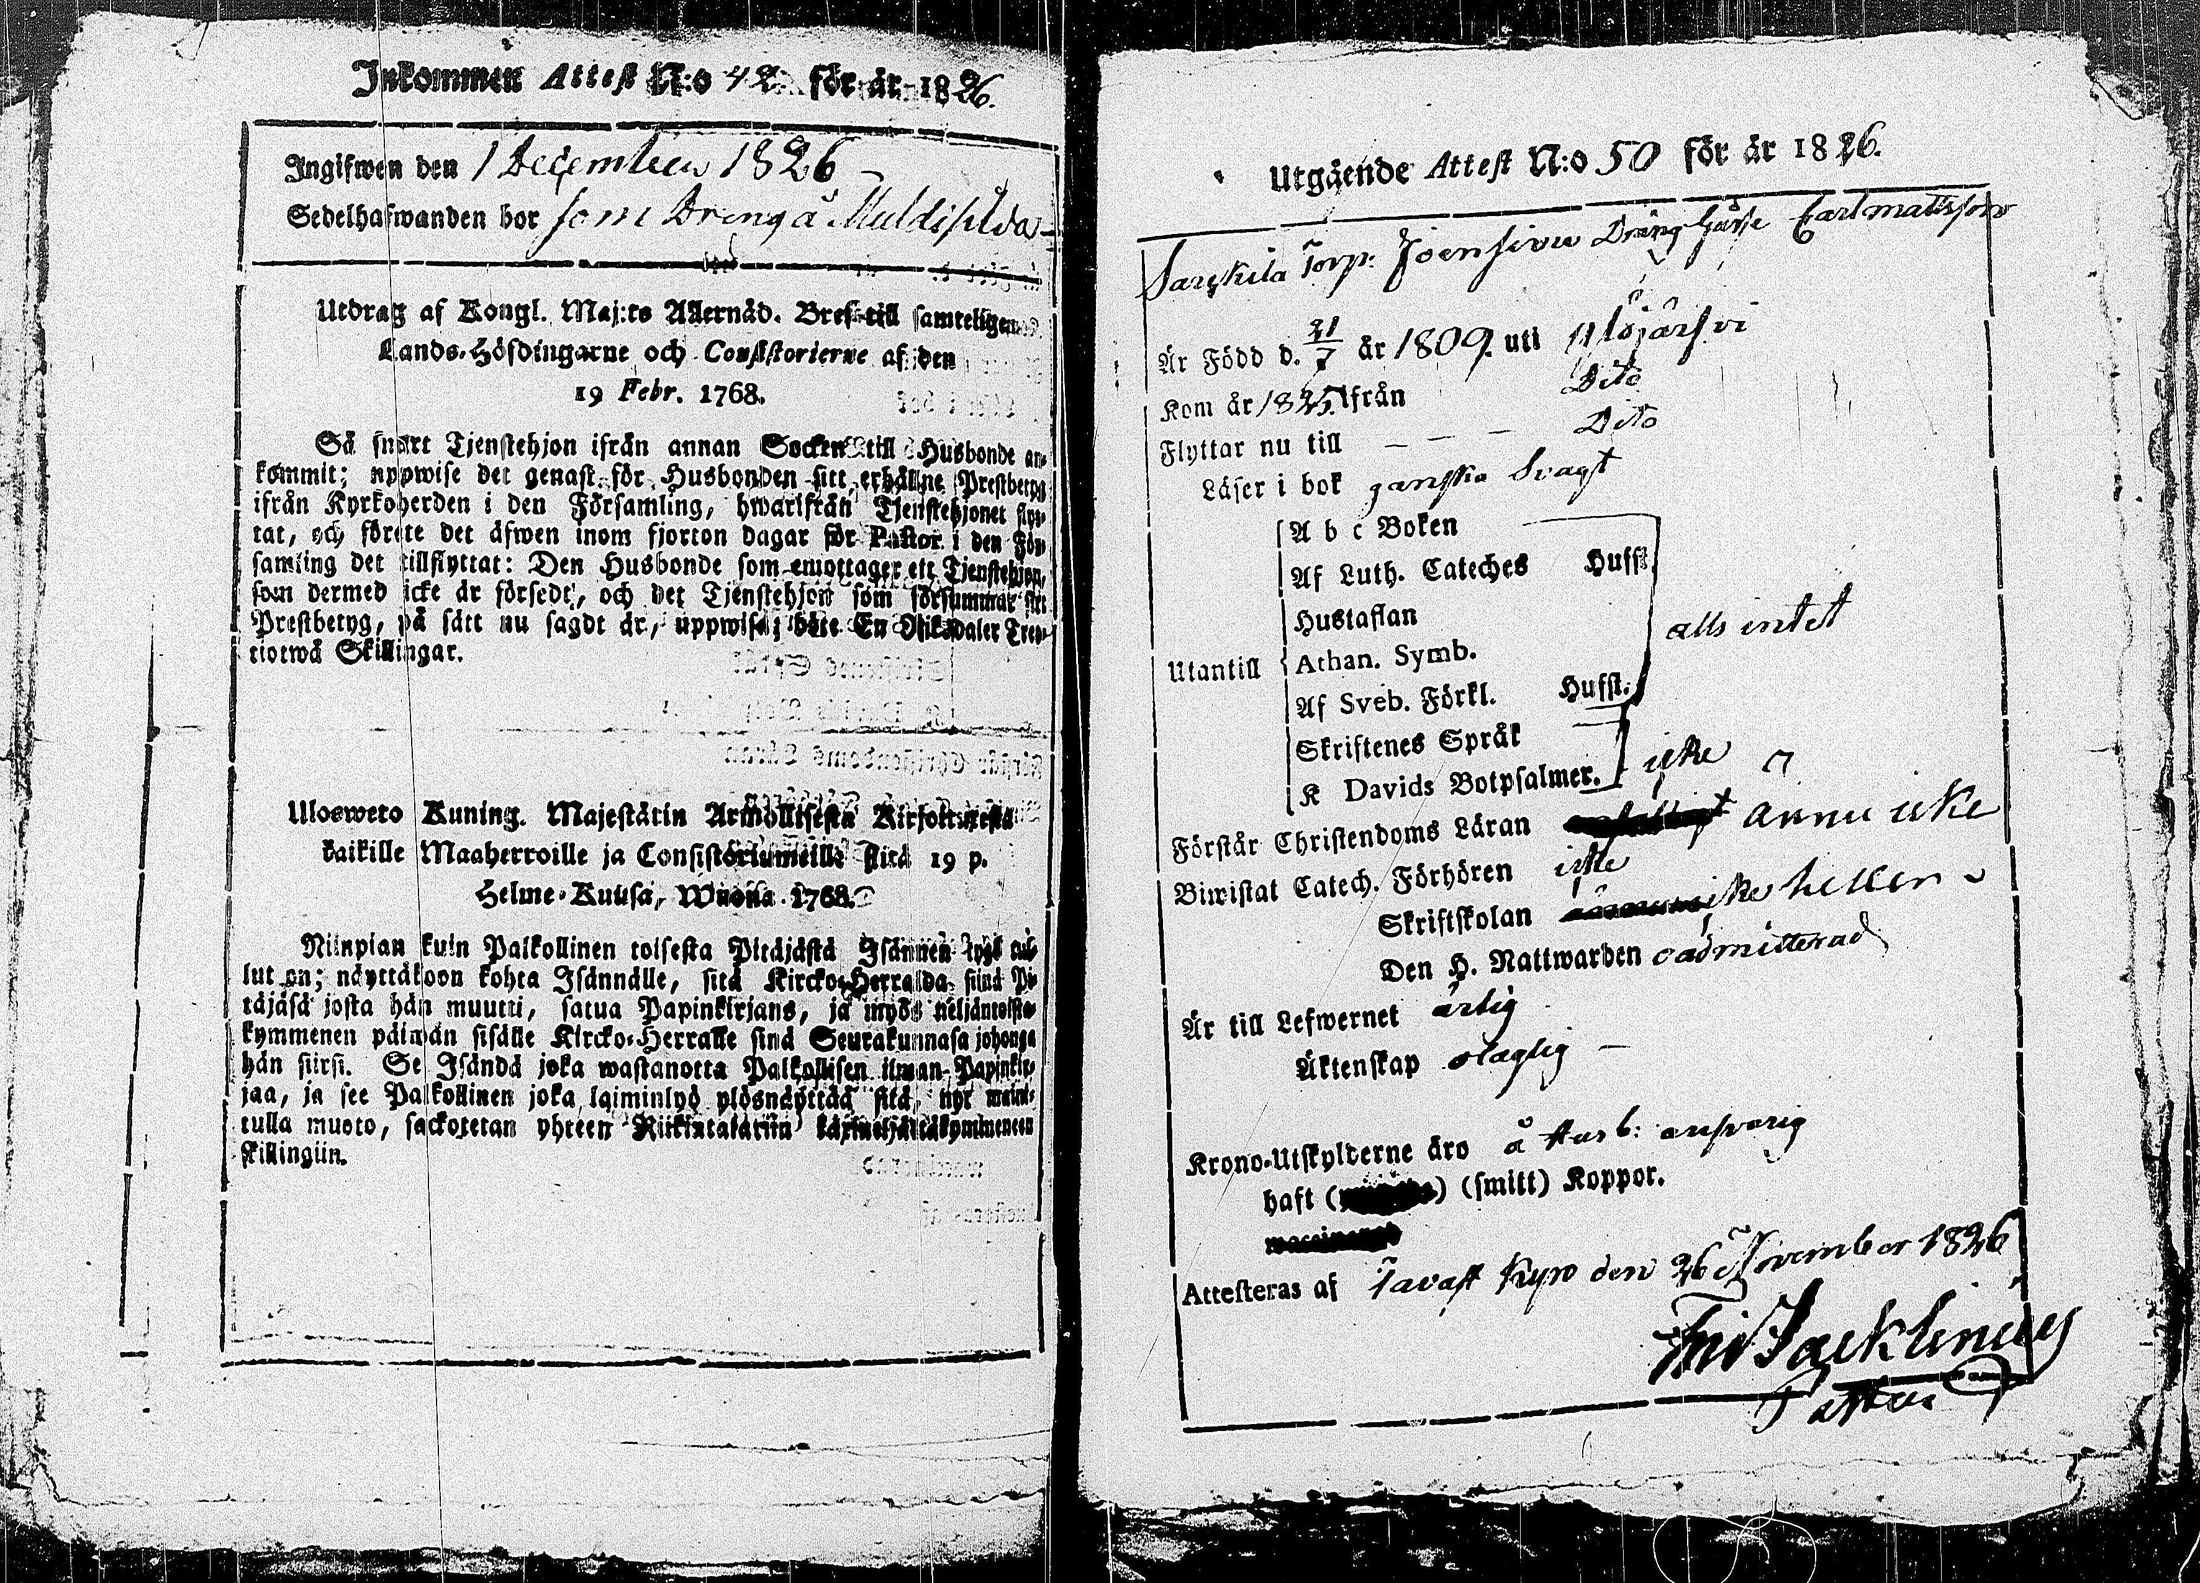 Inkommen Attest N:o 42. för år 1826.
Ingifwen den 1 December 1826
Sedelhafwanden bor som Dreng å
Utdrag af Kongl. Maj:ts Allernåd. Bref till samteligen
Lands-Höfdingarne och Consistorierne af den
19 Febr. 1768.
Så snart Tjenstehjon ifrån annan Socken till Husbonde an-
kommit; uppwise det genast för Husbonden sitt erhållne Prestbetyg
ifrån Kyrkoherden i den Församling, hwarifrån Tjenstehjonet flyt-
tat, och förete det äfwen inom fjorton dagar för Pastor i den För-
samling det tillflyttat: Den Husbonde som emottager ett Tjenstehjon,
som dermed icke är försedt, och det Tjenstehjon som försummar sitt
Prestbetyg, på sätt nu sagdt är, uppwisa; böte En Riksdaler Tret-
tiotwå Skillingar.
Ulosweto Kuning. Majestätin Armollisesta Kirjoituxesta
kaikille Maaherroille ja Consistoriumeille siitä 19 p.
Helme-Kuusa, Wuonna 1768.
Niinpian kuin Palkollinen toisesta Pitäjästä Isännen tygö tul-
lut on; näyttäkoon kohta Isännälle, sitä Kircko-Herralda siinä Pi-
täjäsä josta hän muutti, saatua Papinkirjans, ja myös neljäntoista-
kymmenen päiwän sisälle Kircko-Herralle siinä Seurakunnasa johonga
hän siirsi. Se Isändä joka wastanotta Palkollisen ilman Papinkir-
jaa, ja see Palkollinen joka laiminlyö ylösnäyttää sitä, nyt maini-
tulla muoto, sackotetan yhteen Riikintalariin
skillingiin.
Utgående Attest N:o 50 för år 1826.
Sarkkila Torp. Joensivu Dräng Gåsse Carl Mattsson
Är Född d. 21/7 år 1809. uti Ylöjärfvi
Kom år 1825 ifrån Dito
Flyttar nu till — — — Dito
Läser i bok ganska Svagt
A b c Boken
Af Luth. Cateches Hufst.
Hustaflan
alls intet
Utantill Athan. Symb.
Af Sveb. Förkl. Hufst.
Skriftenes Språk
K Davids Botpsalmer. icke
Förstår Christendoms Läran ännu icke
Biwistat Catech. Förhören icke
Skriftskolan icke heller
Den H. Nattwarden oadmitterad
Är till Lefwernet ärlig
Äktenskap olaglig —
Krono-Utskylderne äro å Husb: ansvarig
haft ( ) (smitt) Koppor.
Attesteras af Tavast Kyro den 26 November 1826